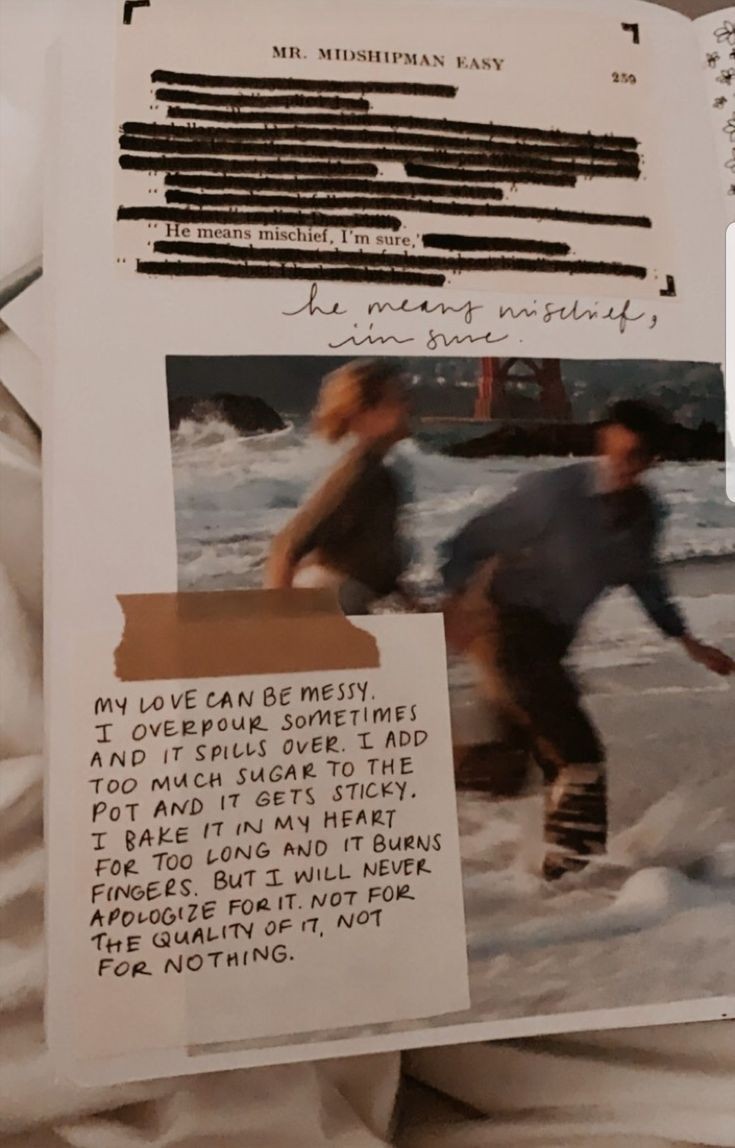 MR. MIDSHIPMAN EASY
259
" He means mischief, I'm sure,"
he means mischief,
i'm sure.
MY LOVE CAN BE MESSY.
I OVERPOUR SOMETIMES
AND IT SPILLS OVER. I ADD
TOO MUCH SUGAR TO THE
POT AND IT GETS STICKY.
I BAKE IT IN MY HEART
FOR TOO LONG AND IT BURNS
FINGERS. BUT I WILL NEVER
APOLOGIZE FOR IT. NOT FOR
THE QUALITY OF IT, NOT
FOR NOTHING.